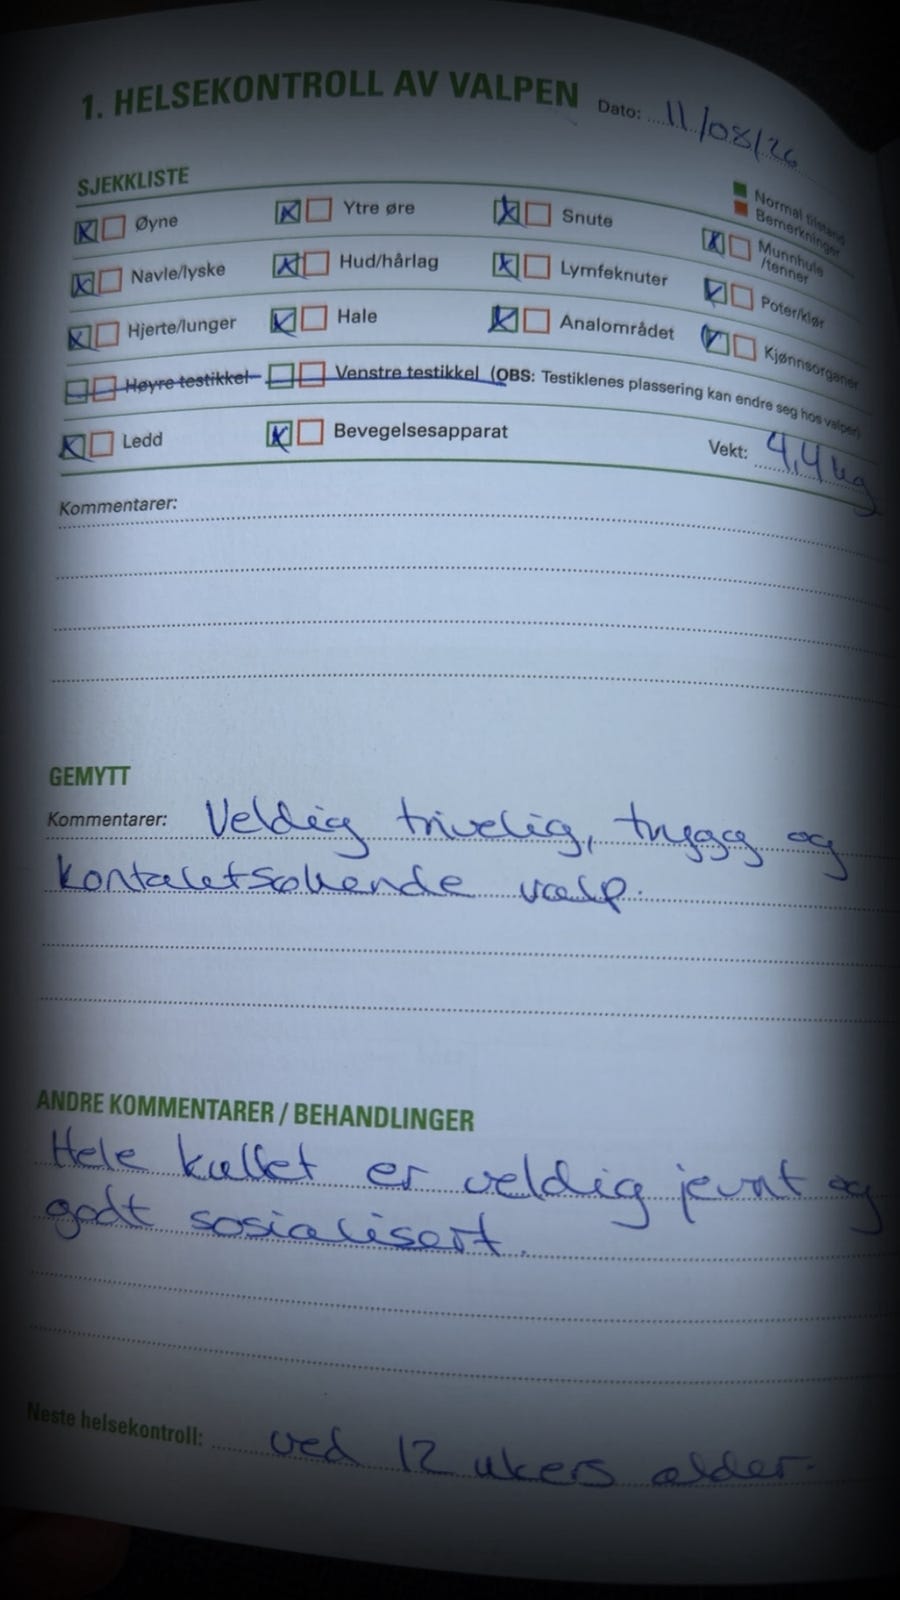 1. HELSEKONTROLL AV VALPEN Dato: 11/08/26
SJEKKLISTE
Normal tilstand
Bemerkninger
Øyne Ytre øre Snute Munnhule /tenner
Navle/lyske Hud/hårlag Lymfeknuter Poter/klør
Hjerte/lunger Hale Analområdet Kjønnsorganer
Høyre testikkel Venstre testikkel (OBS: Testiklenes plassering kan endre seg hos valper)
Ledd Bevegelsesapparat Vekt: 4,4 kg
Kommentarer:
GEMYTT
Kommentarer: Veldig trivelig, trygg og
kontaktsøkende valp.
ANDRE KOMMENTARER / BEHANDLINGER
Hele kullet er veldig jevnt og
godt sosialisert.
Neste helsekontroll: ved 12 ukers alder.